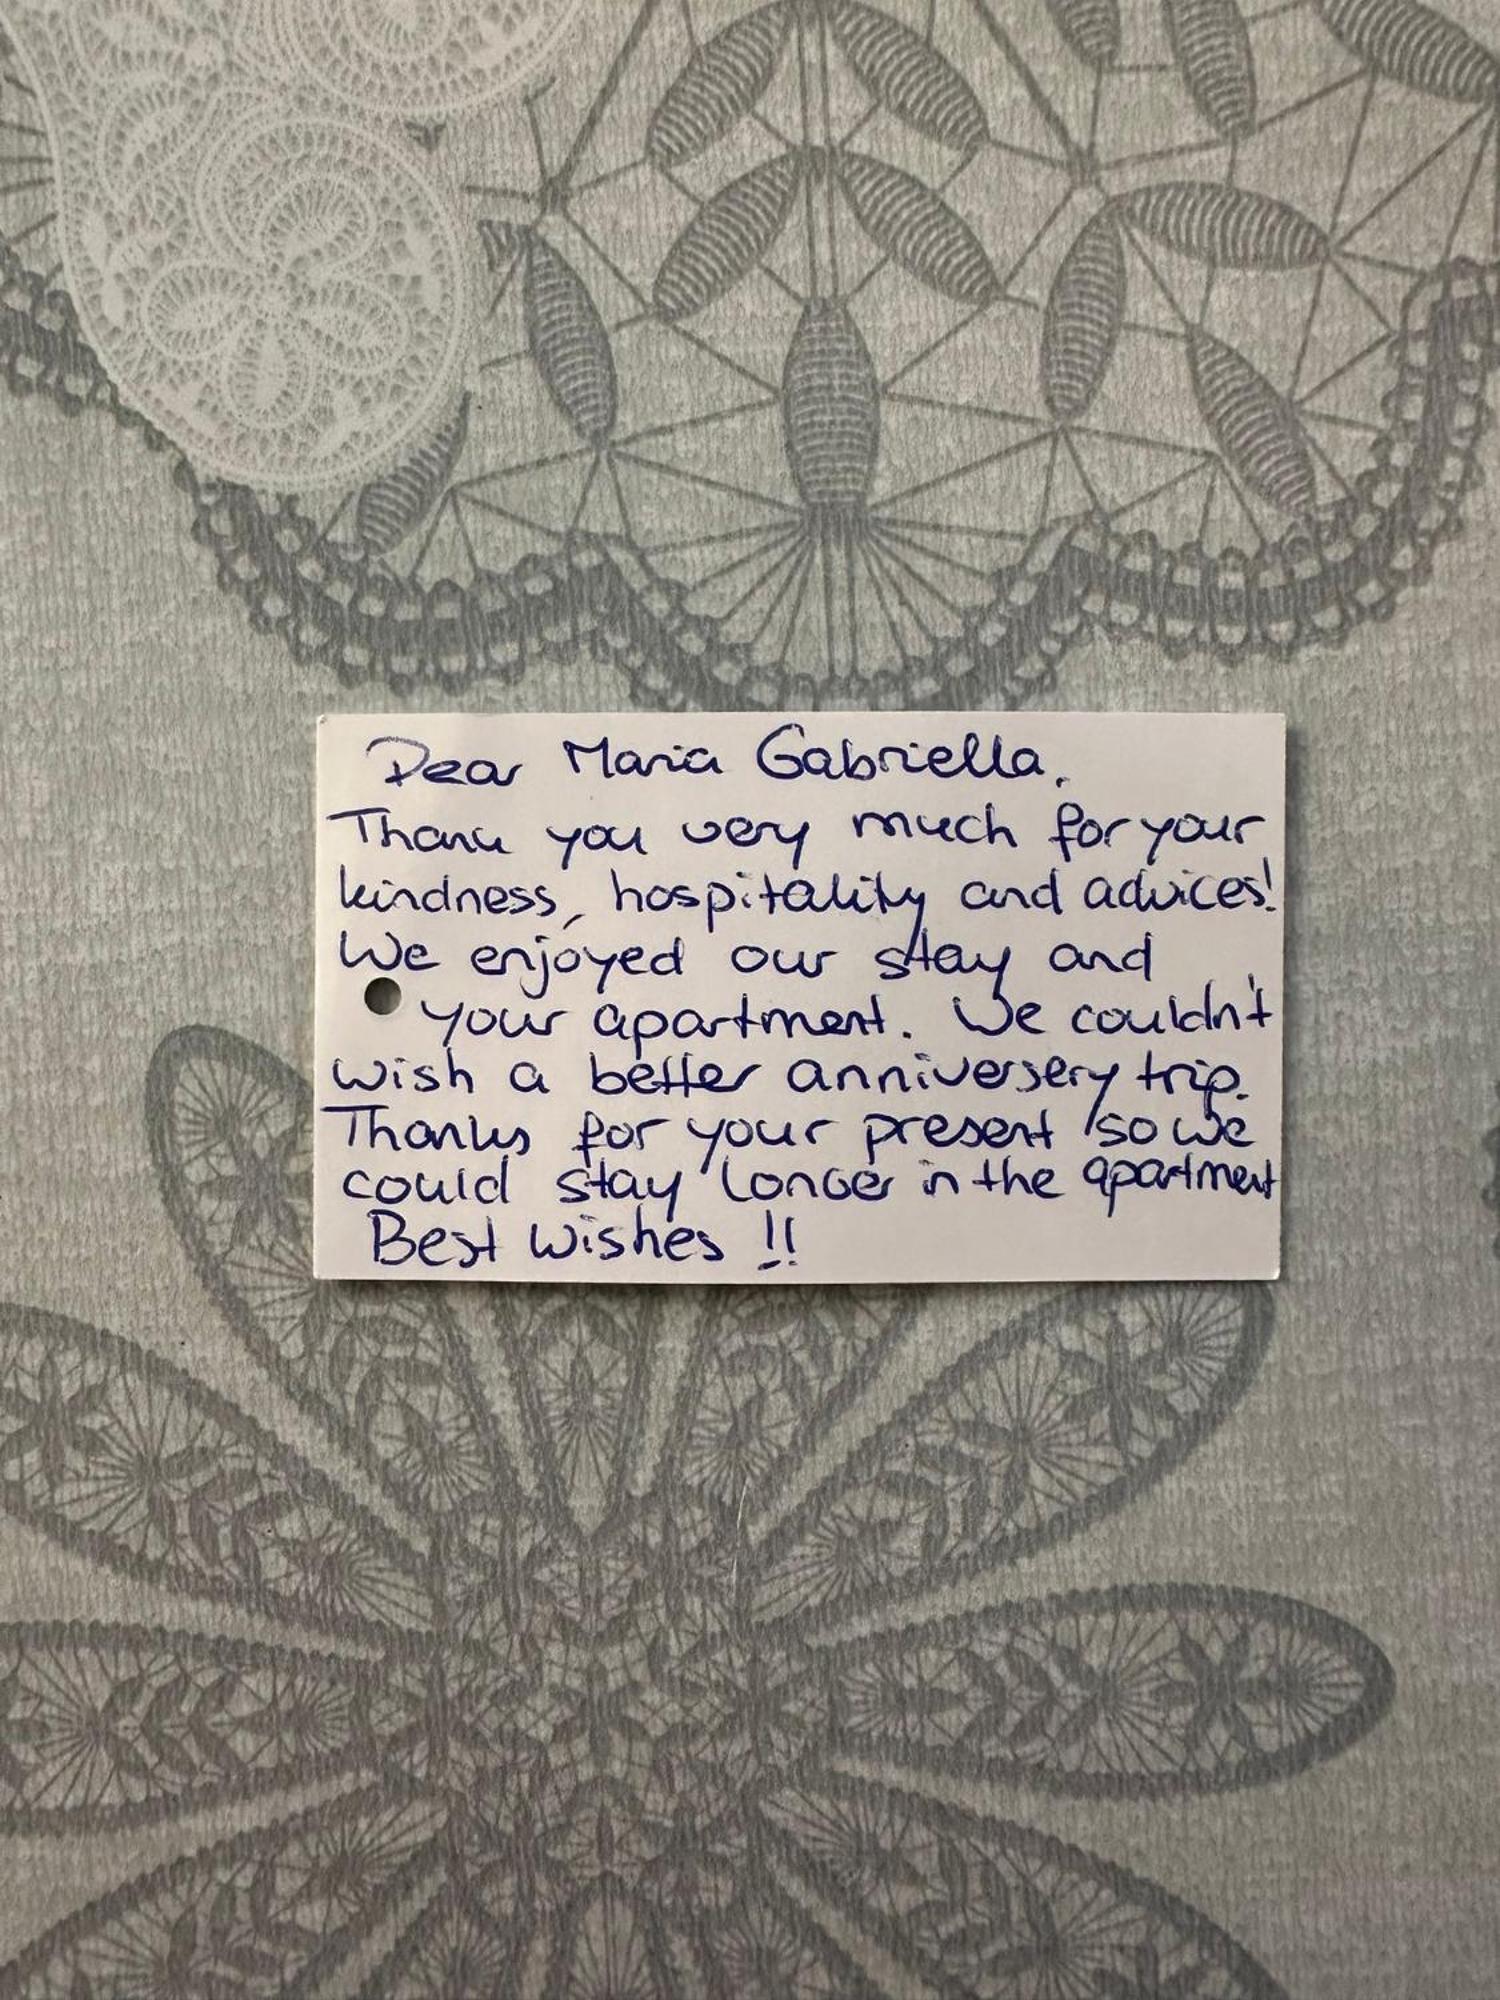 Dear Maria Gabriella,
Thank you very much for your
kindness, hospitality and advices!
We enjoyed our stay and
your apartment. We couldn't
wish a better anniversery trip.
Thanks for your present so we
could stay longer in the apartment
Best Wishes !!